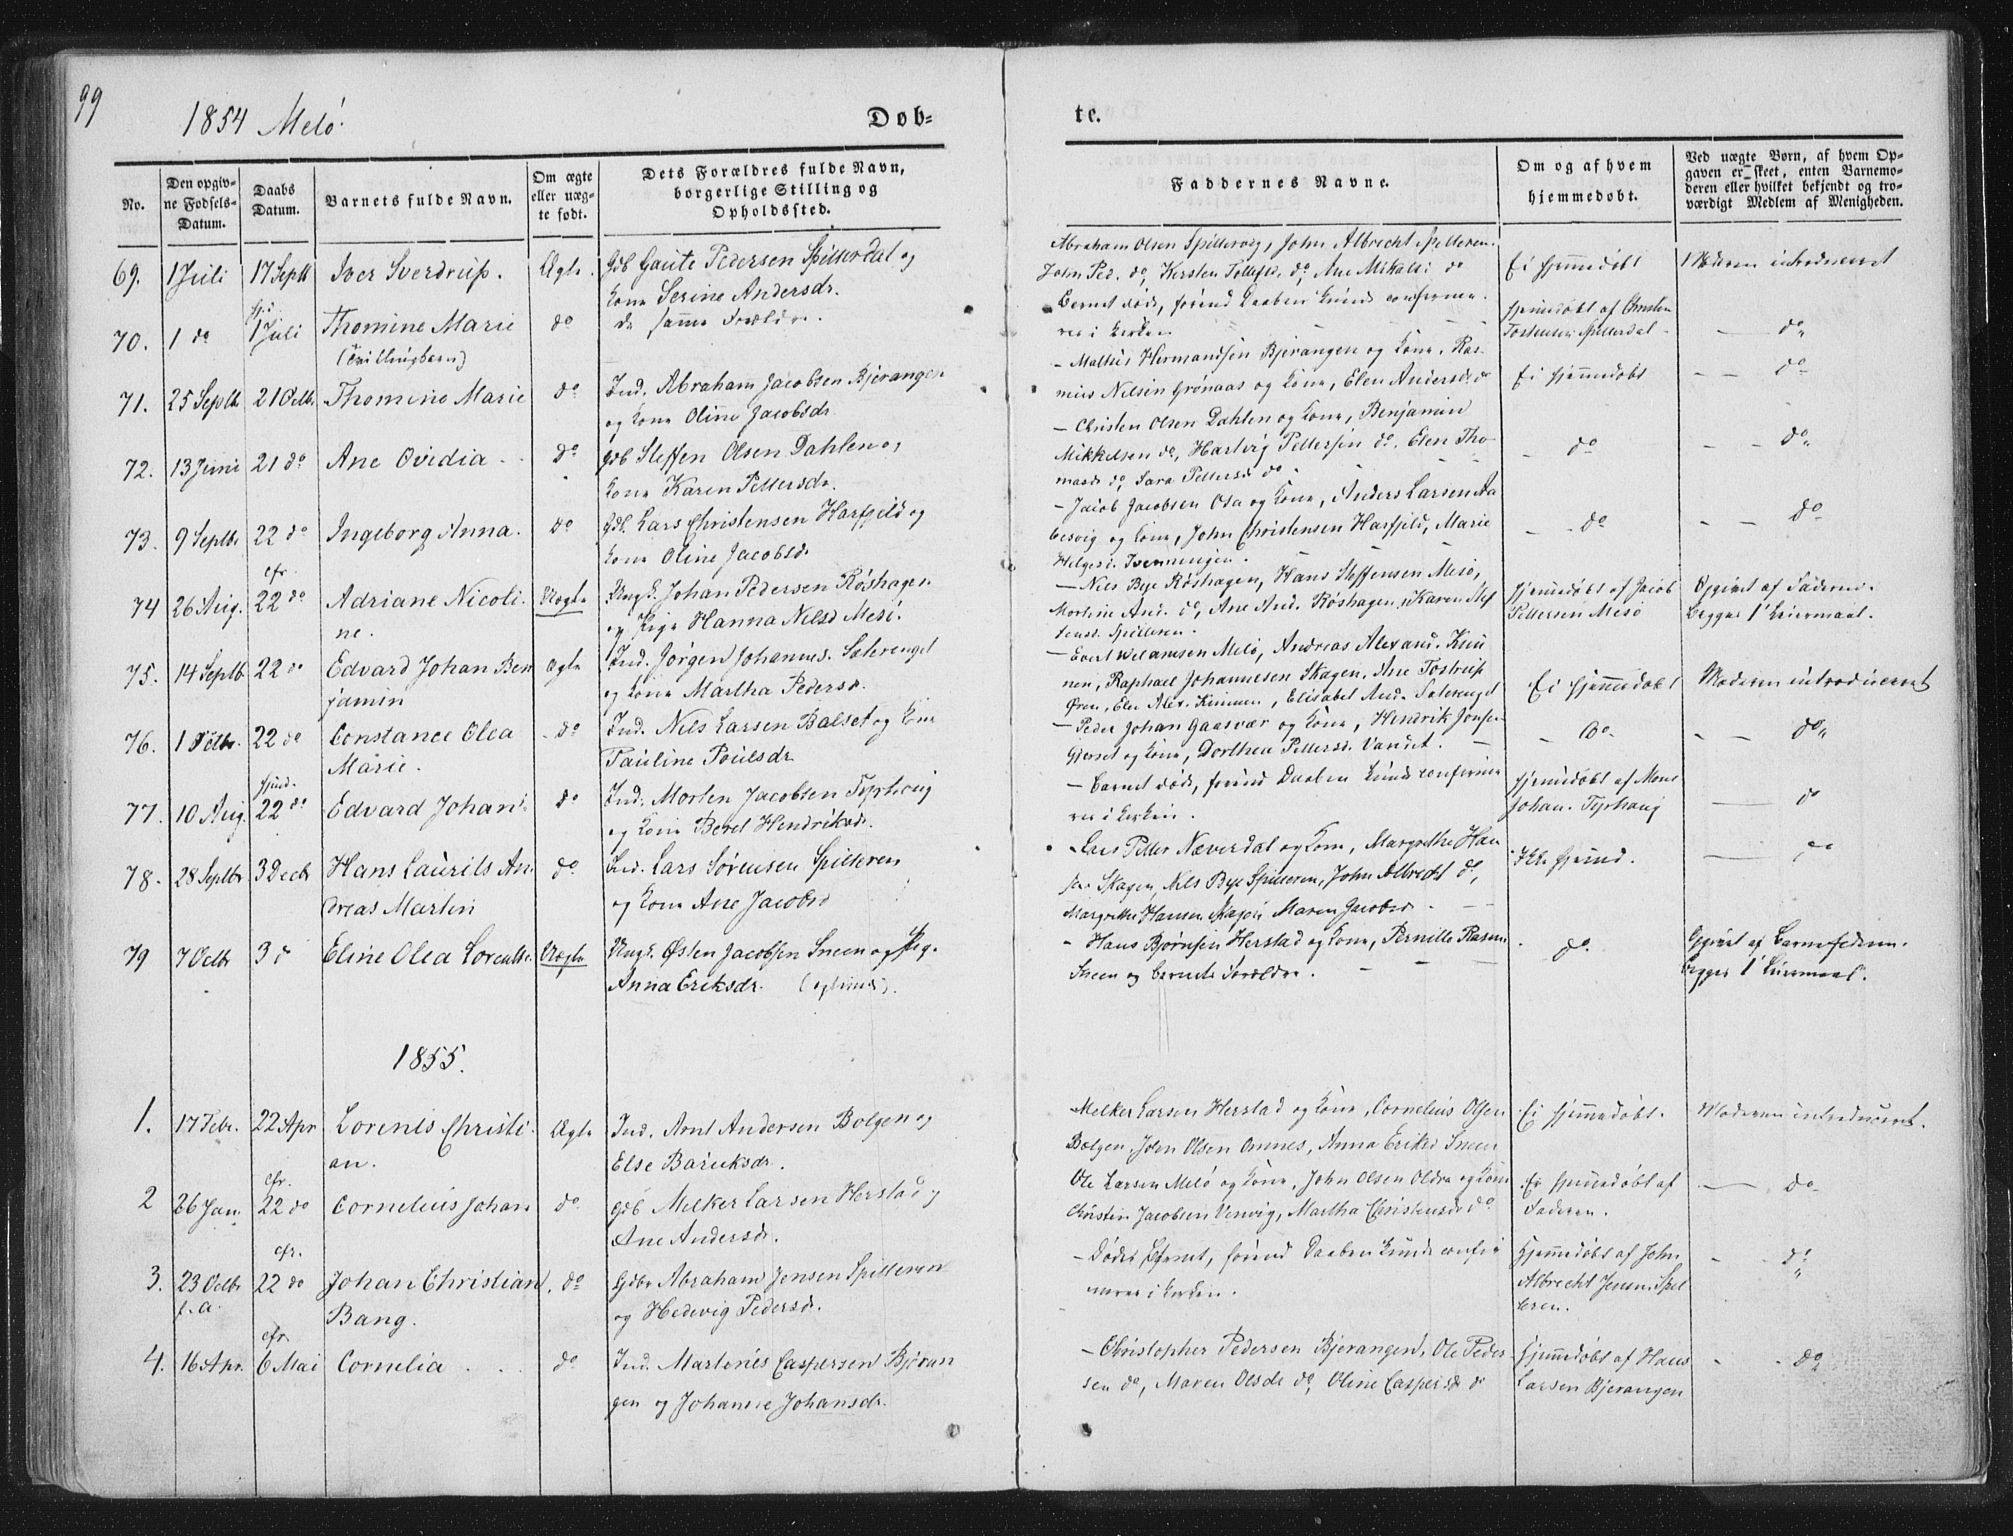 99
1854 Melö.
Dob-
te.
No.
Den opgiv-
ne Fødsels-
Datum.
Daabs
Datum.
Barnets fulde Navn.
Om ægte
eller uæg-
te født.
Dets Forældres fulde Navn,
borgerlige Stilling og
Opholdssted.
Faddernes Navne.
Om og af hvem
hjemmedøbt.
Ved uægte Børn, af hvem Op-
gaven er skeet, enten Barnemo-
deren eller hvilket bekjendt og tro-
værdigt Medlem af Menigheden.
69. 1 Juli 17 Septb Iver Sverdrup. Ægte. Gdb Gaute Pedersen Spilderdal og
Kone Serine Andersdr.
Abraham Olsen Spildervig, John Albrecht Spilderen.
John Ped. do, Kersten Tollefsd. do, Ane Mikalsd. do
Ei hjemmedøbt
Moderen introduceret
70. 1 do 1 Juli Thomine Marie do de samme Forældre.
(Tvillingbarn)
Barnet døde, førend Daaben kunde confirme-
res i Kirken
hjemmedøbt af Christen
Tostensen Spilderdal
do
71. 25 Septbr 21 Octbr Thomine Marie do Ind. Abraham Jacobsen Bjerangen
og Kone Oline Jacobsdr
- Mathis Hermandsen Bjerangen og Kone, Ras-
mus Nilsen Grønaas og Kone, Elen Andersd. do
Ei hjemmedøbt
do
72. 13 Juni 21 do Ane Ovidia do Gdb Steffen Olsen Dahlen og
Kone Karen Pettersdr.
- Christen Olsen Dahlen og Kone, Benjamin
Mikkelsen do, Hartvig Pettersen do, Elen Tho-
masd. do, Sara Pettersd do.
do
do
73. 9 Septbr 22 do Ingeborg Anna. do Gdb. Lars Christensen Harfjeld og
Kone Oline Jacobsdr
- Jacob Jacobsen Osa og Kone, Anders Larsen Aa
besvig og Kone, John Christensen Harfjeld, Marie
Helgesd. Tvenningen.
do
do
74 26 Aug. cfr. 22 do Adriane Nicoli-
ne.
Uægte Ungk. Johan Pedersen Røshagen
og Pige Hanna Nilsd Mesö.
- Nils Bye Røshagen, Hans Steffensen Mesö,
Mortine And. do, Ane And. Røshagen, Karen Stef
fensd. Spilderen.
hjemmedøbt af Jacob
Pettersen Mesö
Opgivet af Faderen.
Begges 1ste Leiermaal.
75. 14 Septb 22 do Edvard Johan Ben
jamin
Ægte Ind. Jörgen Johannes. Saterengel
og Kone Martha Pedersd.
- Evert Welamsen Melö, Andreas Alexand. Kin
nen, Raphael Johannesen Skagen, Ane Tostrup
Ören, Elen Alex. Kinnen, Elisabet And. Saterenget
Ei hjemmedøbt
Moderen introduceret
76. 1 Octbr. 22 do Constance Olea
Marie.
do Ind. Nils Larsen Balset og Kone
Pauline Poulsdr
- Peder Johan Gaasvær og Kone, Hendrik Jonsen
Gjerset og Kone, Dorthea Pettersd. Vandet.
do
do
77. 10 Aug. 22 do Edvard Johan do Ind. Morten Jacobsen Teplhoug
og Kone Beret Hendriksdr.
- Barnet døde, førend Daaben kunde confirme
res i Kirken.
hjemmedøbt af Mons
Johan.
do
78. 28 Septbr 3 Decbr Hans Laurits An
dreas Martin
do. Ind. Lars Sörensen Spilderen
og Kone Ane Jacobsd
- Lars Petter Næverdal og Kone, Margrethe Han
sen Skagen, Nils Bye Spilderen, John Albrecht do,
Margrethe Hansen Skagen Maren Jacobsd
Ikke hjemd.
do
79 7 Octbr 3 d Eline Olea Lorentse. Uægte Ungk. Østen Jacobsen Sneen og Pig.
Anna Eriksdr.
- Hans Bjørnsen Herstad og Kone, Pernille Rasm
Sneen og Barnets Forældre.
do.
Opgivet af Barnefaderen.
Begges 1ste Leiermaal.
1855.
1. 17 Febr. 22 Apr Lorents Christi-
an.
Ægte Ind. Arnt Andersen Bolgen og
Else Baruksdr.
Melker Larsen Herstad og Kone, Cornelius Olsen
Bolgen, John Olsen Omnes, Anna Eriksd Sneen
Ei hjemmedøbt.
Moderen introduceret.
2 26 Jan. cfr. 22 do Cornelius Johan do Gdb Melker Larsen Herstad og
Ane Andersdr.
Ole Larsen Melö og Kone, John Olsen Oldra og Kone
Christen Jacobsen Venvig, Martha Christensd. do
Er hjemmedøbt af
Faderen.
do
3. 23 Octbr f. a. cfr. 22 do Johan Christian
Bang.
do Gdbr Abraham Jensen Spilderen
og Hedevig Pedersd.
- Döde Barnet, førend Daaben kunde confir
meres i Kirken.
Hjemmedøbt af John
Albrecht Jensen Spil
deren.
do
4. 16 Apr. cfr. 6 Mai Cornelia do Ind. Martinus Caspersen Bjeran
gen og Johanne Johansdr.
- Christopher Pedersen Bjerangen, Ole Peder
sen do, Maren Olsdr do, Oline Caspersd. do
Hjemmedøbt af Hans
Larsen Bjerangen
do